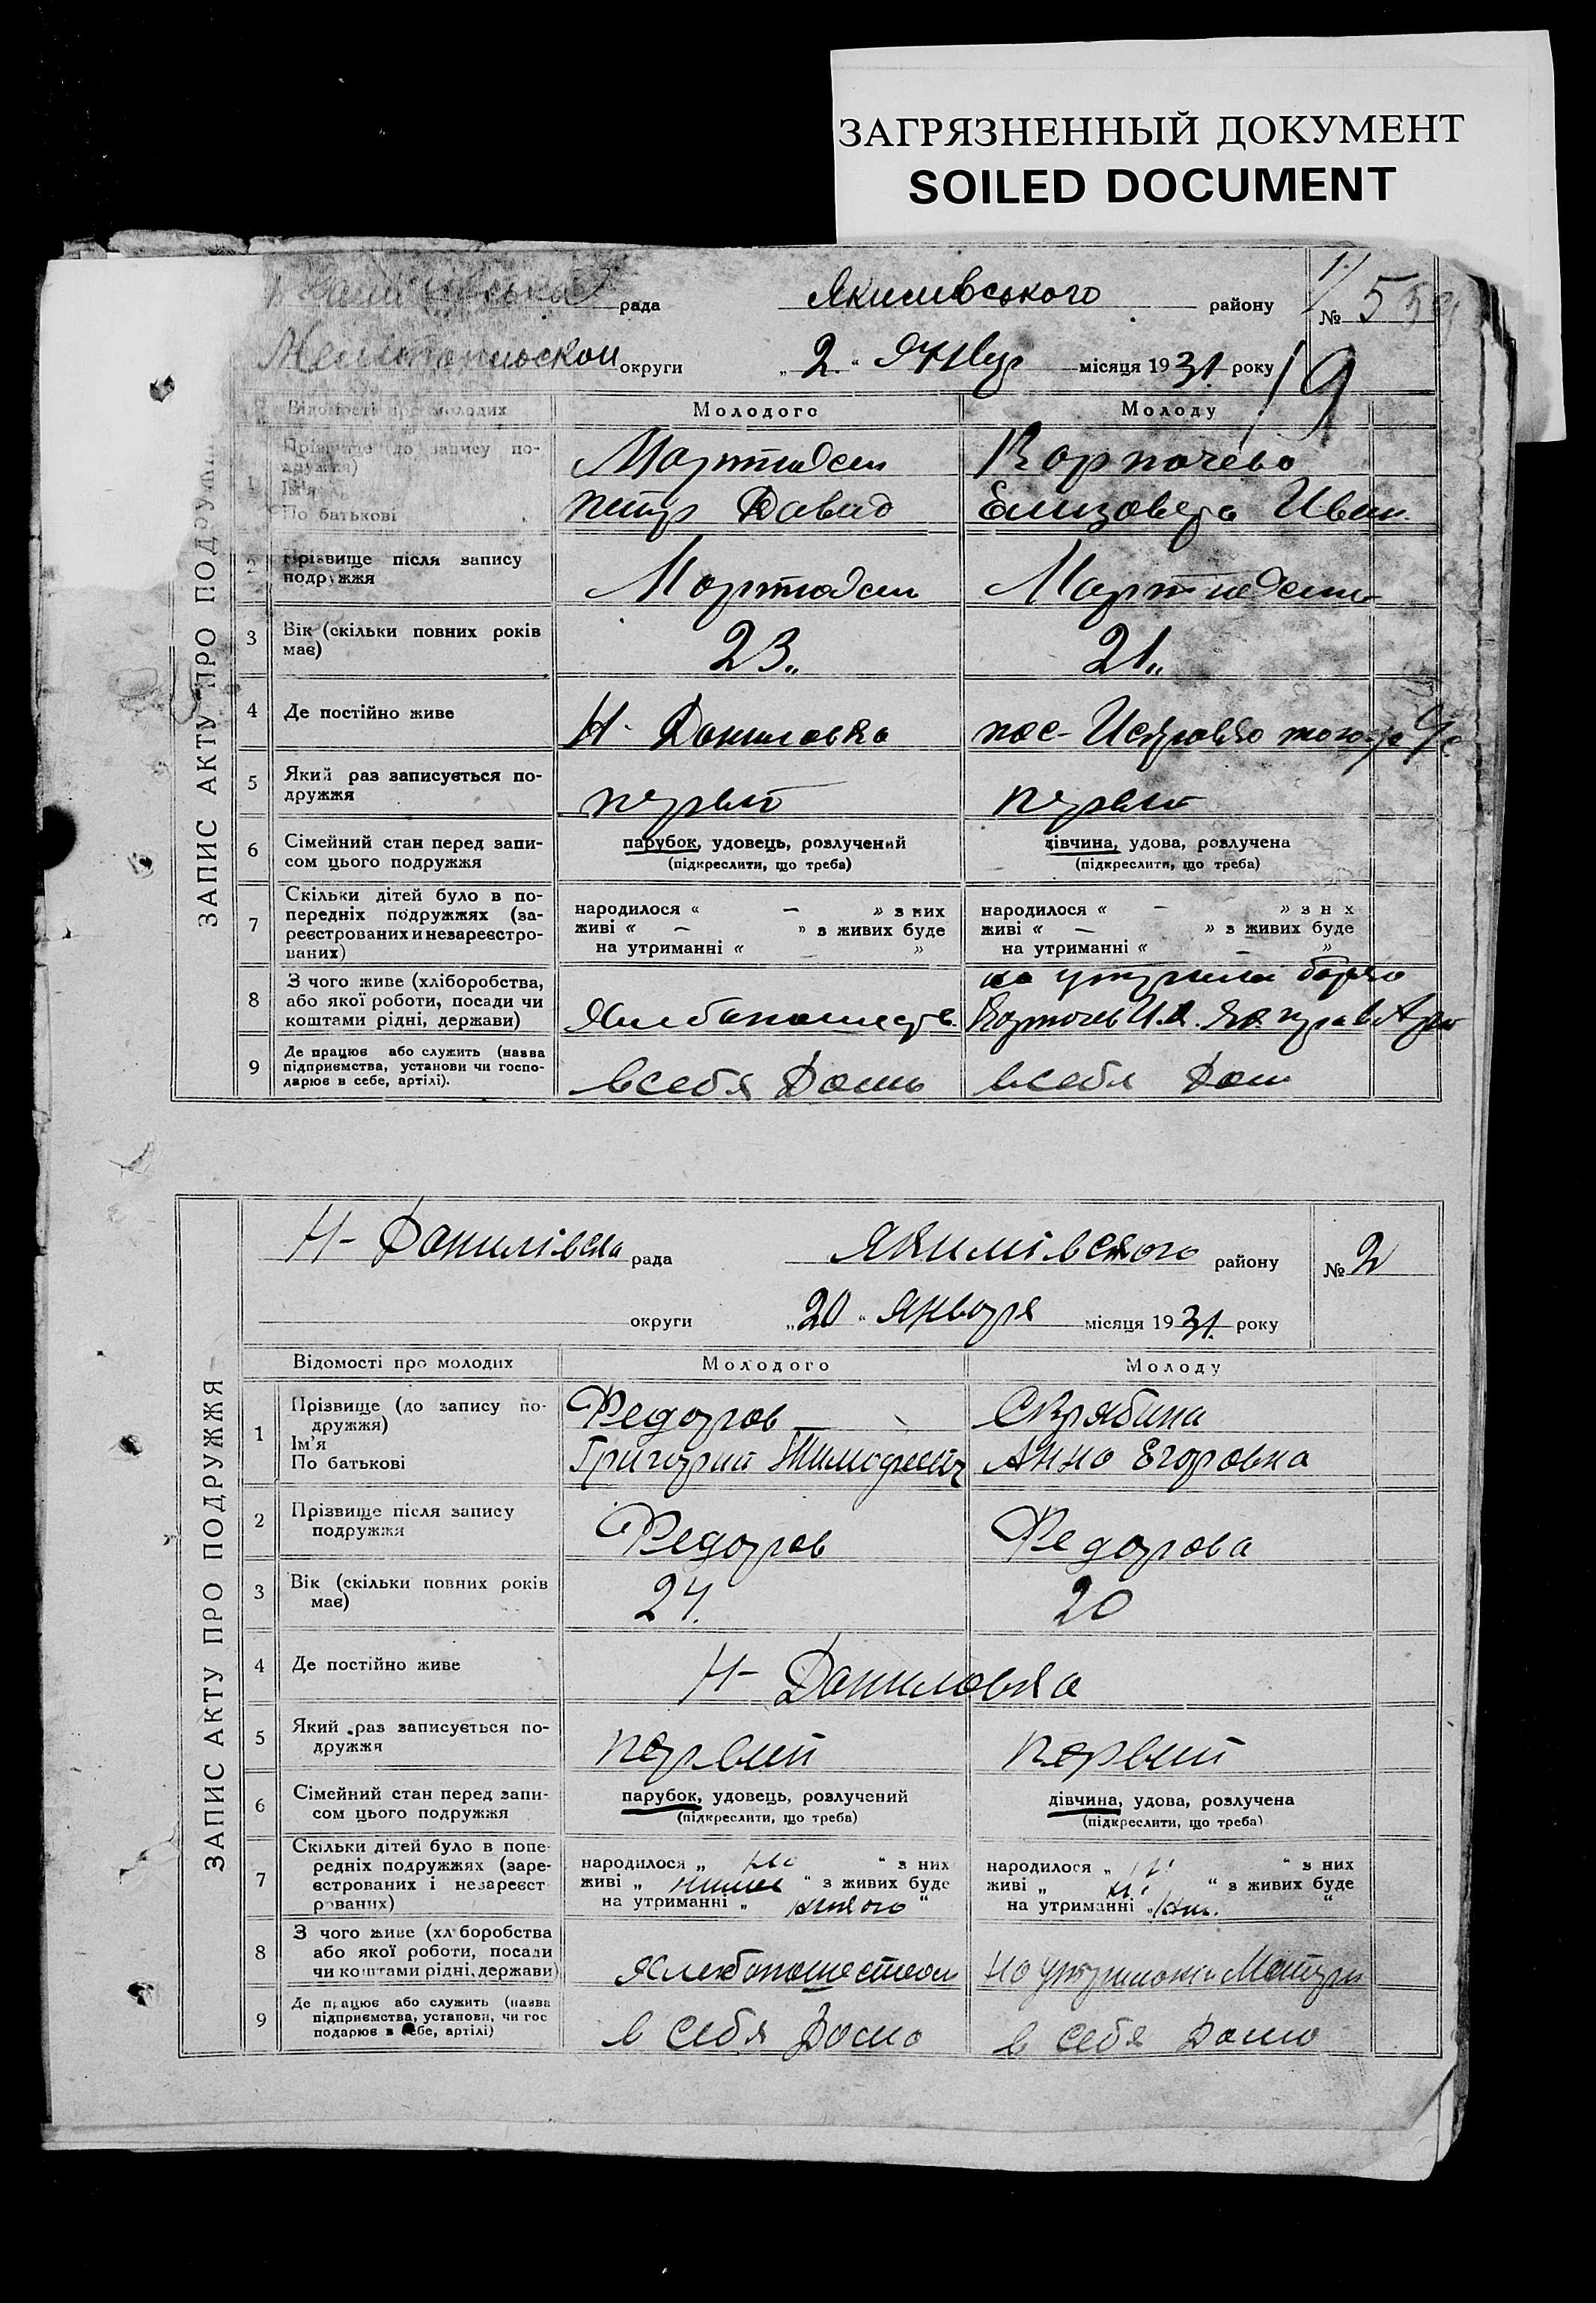 ЗАГРЯЗНЕННЫЙ ДОКУМЕНТ
SOILED DOCUMENT
рада Якимівського району № 5
округи „ 2 “ Янвр місяця 1931 року
19
ЗАПИС АКТУ ПРО ПОДРУЖ
Відомості про молодих Молодого Молоду
1 Прізвище (до запису по-
дружжя)
Ім'я
По батькові
Петр Давид Елизовета Иван
2 Прізвище після запису
подружжя
3 Вік (скільки повних років
має) 23 21
4 Де постійно живе Н- Даниловка пос-
5 Який раз записується по-
дружжя первый первый
6 Сімейний стан перед запи-
сом цього подружжя
парубок, удовець, розлучений дівчина, удова, розлучена
(підкреслити, що треба) (підкреслити, що треба)
7 Скільки дітей було в по-
передніх подружжях (за-
реєстрованих и незареєстро-
ваних)
народилося « — » з них народилося « — » з н х
живі « — » з живих буде живі « — » з живих буде
на утриманні « » на утриманні « »
8 З чого живе (хліборобства,
або якої роботи, посади чи
коштами рідні, держави)
9 Де працює або служить (назва
підприємства, установи чи госпо-
дарює в себе, артілі).
в себя Дома в себя Дом
ЗАПИС АКТУ ПРО ПОДРУЖЖЯ
Н- Данилівска рада Якимівского району № 2
округи „ 20 “ Января місяця 1931 року
Відомості про молодих Молодого Молоду
1 Прізвище (до запису по-
дружжя)
Ім'я
По батькові
Федоров Скрябина
Григорий Тимофеевич Анна Егоровна
2 Прізвище після запису
подружжя
Федоров Федорова
3 Вік (скільки повних років
має) 24. 20
4 Де постійно живе Н- Даниловка
5 Який раз записується по-
дружжя первый первый
6 Сімейний стан перед запи-
сом цього подружжя
парубок, удовець, розлучений дівчина, удова, розлучена
(підкреслити, що треба) (підкреслити, що треба)
7 Скільки дітей було в попе-
редніх подружжях (заре-
єстрованих і незареєст
рованих)
народилося „ “ з них народилося „ “ з них
живі „ “ з живих буде живі „ “ з живих буде
на утриманні „ “ на утриманні „ “
8 З чого живе (хл боробства
або якої роботи, посади
чи коштами рідні, держави)
Хлебопашеством На Матери
9 Де працює або служить (назва
підприємства, установи, чи гос
подарює в себе, артілі)
в себя Дома в себя Дома